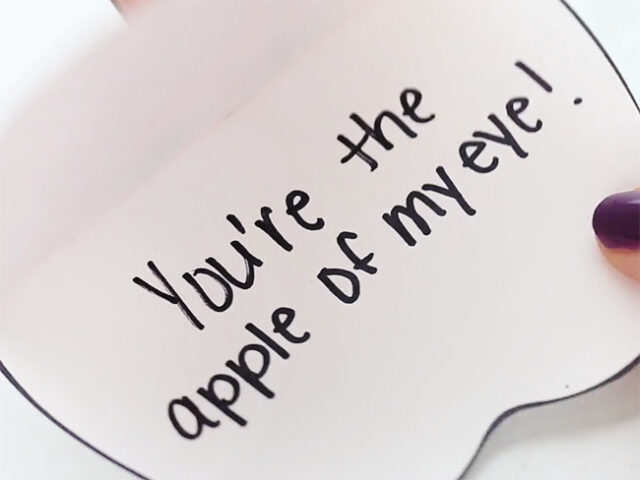 You're the
apple of my eye!